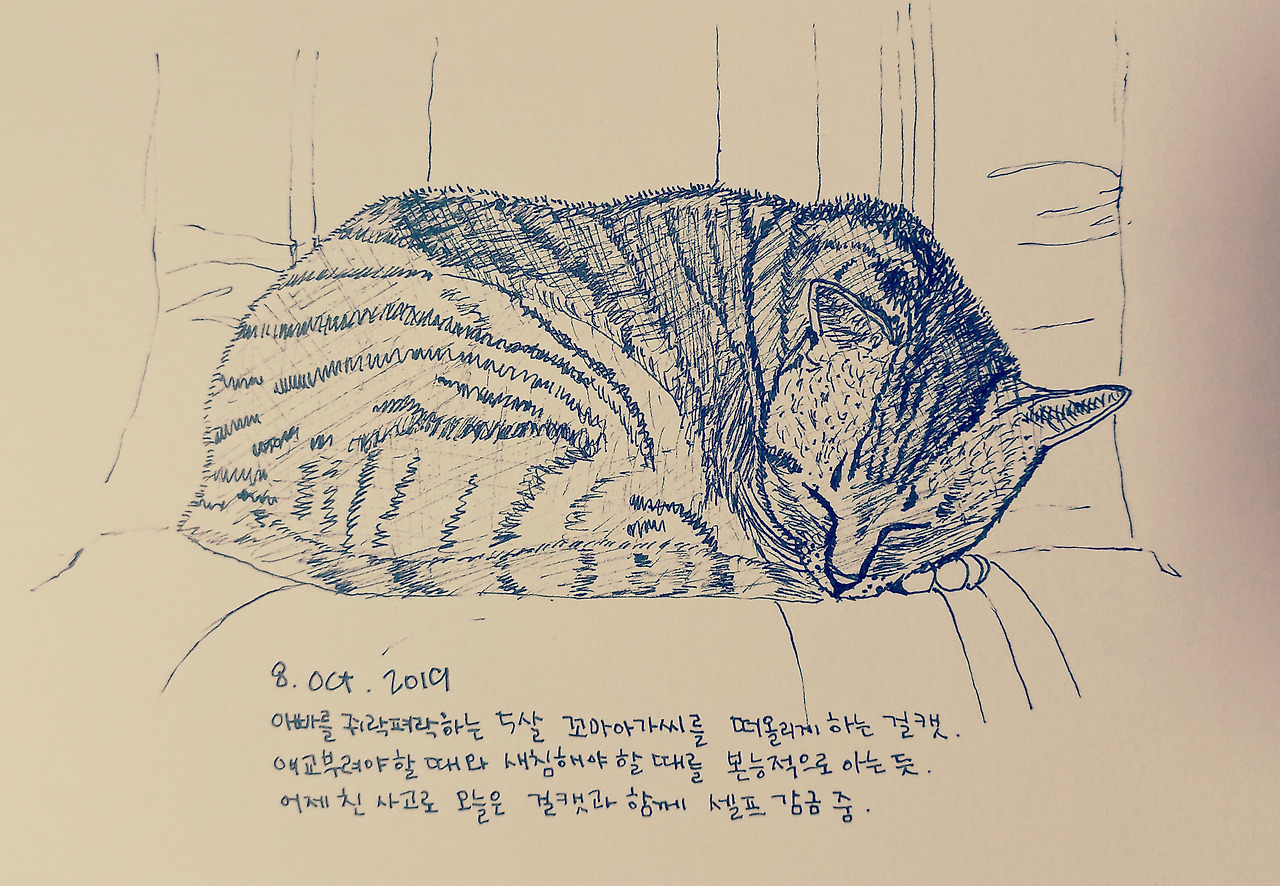 8. Oct. 2019
아빠를 쥐락펴락하는 5살 꼬마아가씨를 떠올리게 하는 걸캣.
애교부려야할 때와 새침해야 할 때를 본능적으로 아는 듯.
어제 친 사고로 오늘은 걸캣과 함께 셀프 감금 중.